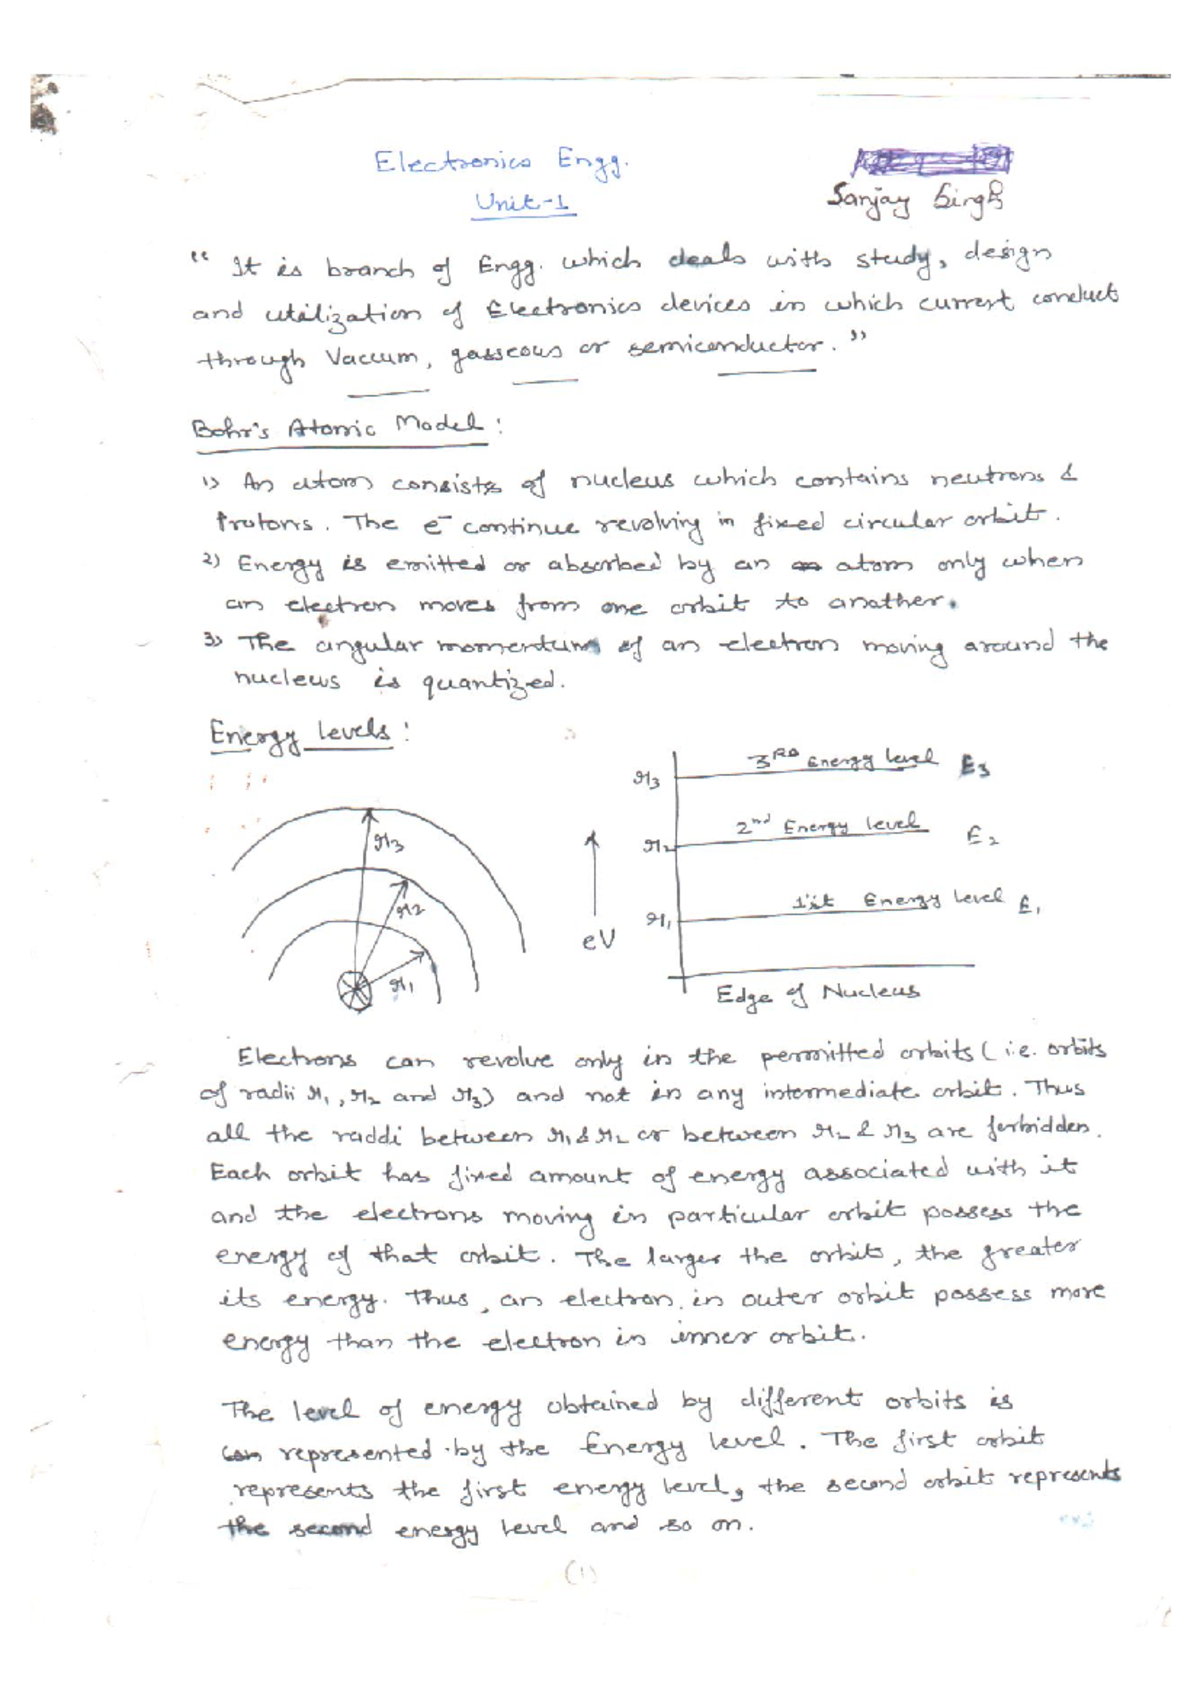 Electronics Engg.
Unit-1
Sanjay Singh
“ It is branch of Engg. which deals with study, design
and utilization of Electronics devices in which current conduct
through Vaccum, gasseous or semiconductor. ”
Bohr's Atomic Model :
1) An atom consists of nucleus which contains neutrons &
Protons. The e⁻ continue revolving in fixed circular orbit.
2) Energy is emitted or absorbed by an atom only when
an electron moves from one orbit to another.
3) The angular momentum of an electron moving around the
nucleus is quantized.
Energy levels :
r3
r2
r1
eV
r3 3RD Energy level E3
r2 2nd Energy level E2
r1 1'st Energy Level E1
Edge of Nucleus
Electrons can revolve only in the permitted orbits ( i.e. orbits
of radii r1, r2 and r3) and not in any intermediate orbit. Thus
all the raddi between r1 & r2 or between r2 & r3 are forbidden.
Each orbit has fixed amount of energy associated with it
and the electrons moving in particular orbit possess the
energy of that orbit. The larger the orbit, the greater
its energy. Thus, an electron in outer orbit possess more
energy than the electron in inner orbit.
The level of energy obtained by different orbits is
represented by the Energy level. The first orbit
represents the first energy level, the second orbit represents
the second energy level and so on.
(1)